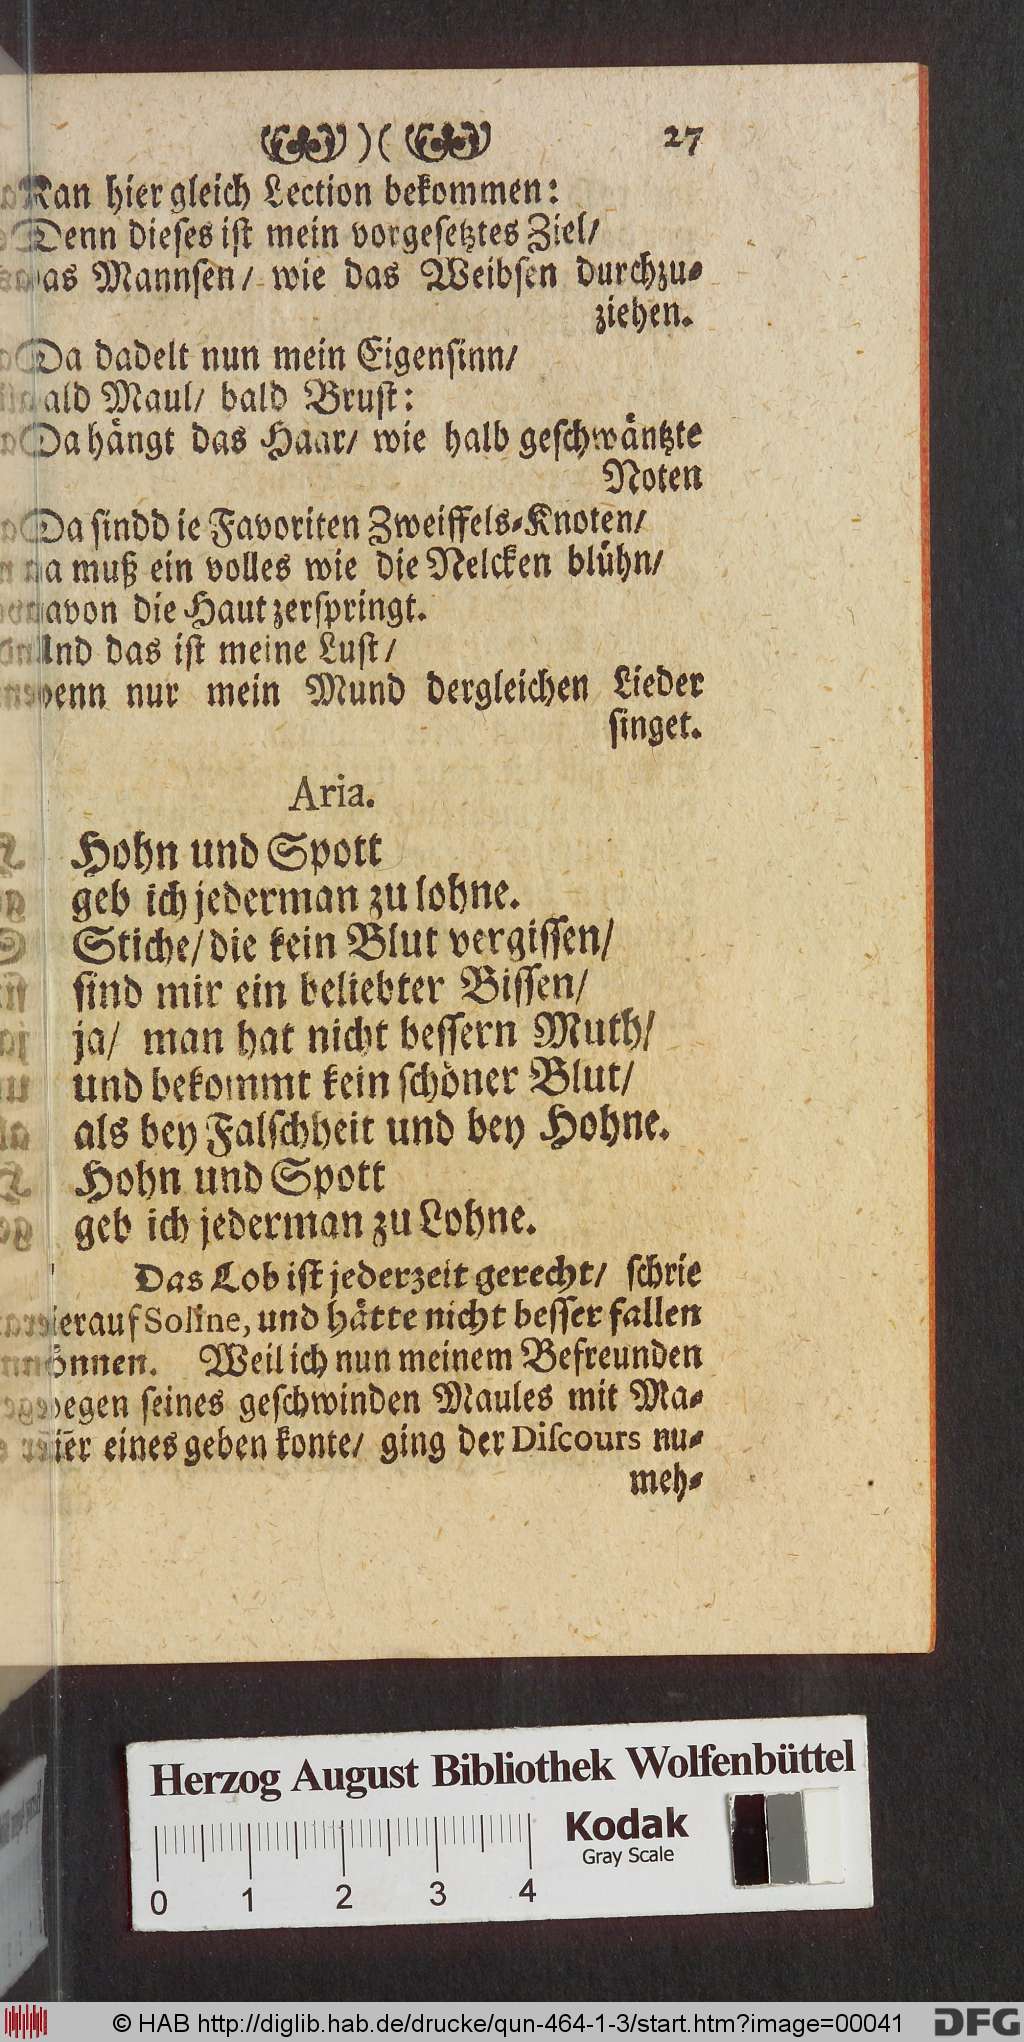 )( 27
Kan hier gleich Lection bekommen:
Denn dieses ist mein vorgesetztes Ziel/
das Mannsen/ wie das Weibsen durchzu⸗
ziehen.
Da dadelt nun mein Eigensinn/
bald Maul/ bald Brust:
Da hängt das Haar/ wie halb geschwäntzte
Noten
Da sindd ie Favoriten Zweiffels⸗Knoten/
da muß ein volles wie die Nelcken blühn/
davon die Haut zerspringt.
Und das ist meine Lust/
wenn nur mein Mund dergleichen Lieder
singet.
Aria.
Hohn und Spott
geb ich jederman zu lohne.
Stiche/ die kein Blut vergissen/
sind mir ein beliebter Bissen/
ja/ man hat nicht bessern Muth/
und bekommt kein schöner Blut/
als bey Falschheit und bey Hohne.
Hohn und Spott
geb ich jederman zu Lohne.
Das Lob ist jederzeit gerecht/ schrie
hierauf Soline, und hätte nicht besser fallen
können. Weil ich nun meinem Befreunden
wegen seines geschwinden Maules mit Ma⸗
nier eines geben konte/ ging der Discours nu⸗
meh⸗
Herzog August Bibliothek Wolfenbüttel
Kodak
Gray Scale
0 1 2 3 4
© HAB http://diglib.hab.de/drucke/qun-464-1-3/start.htm?image=00041
DFG